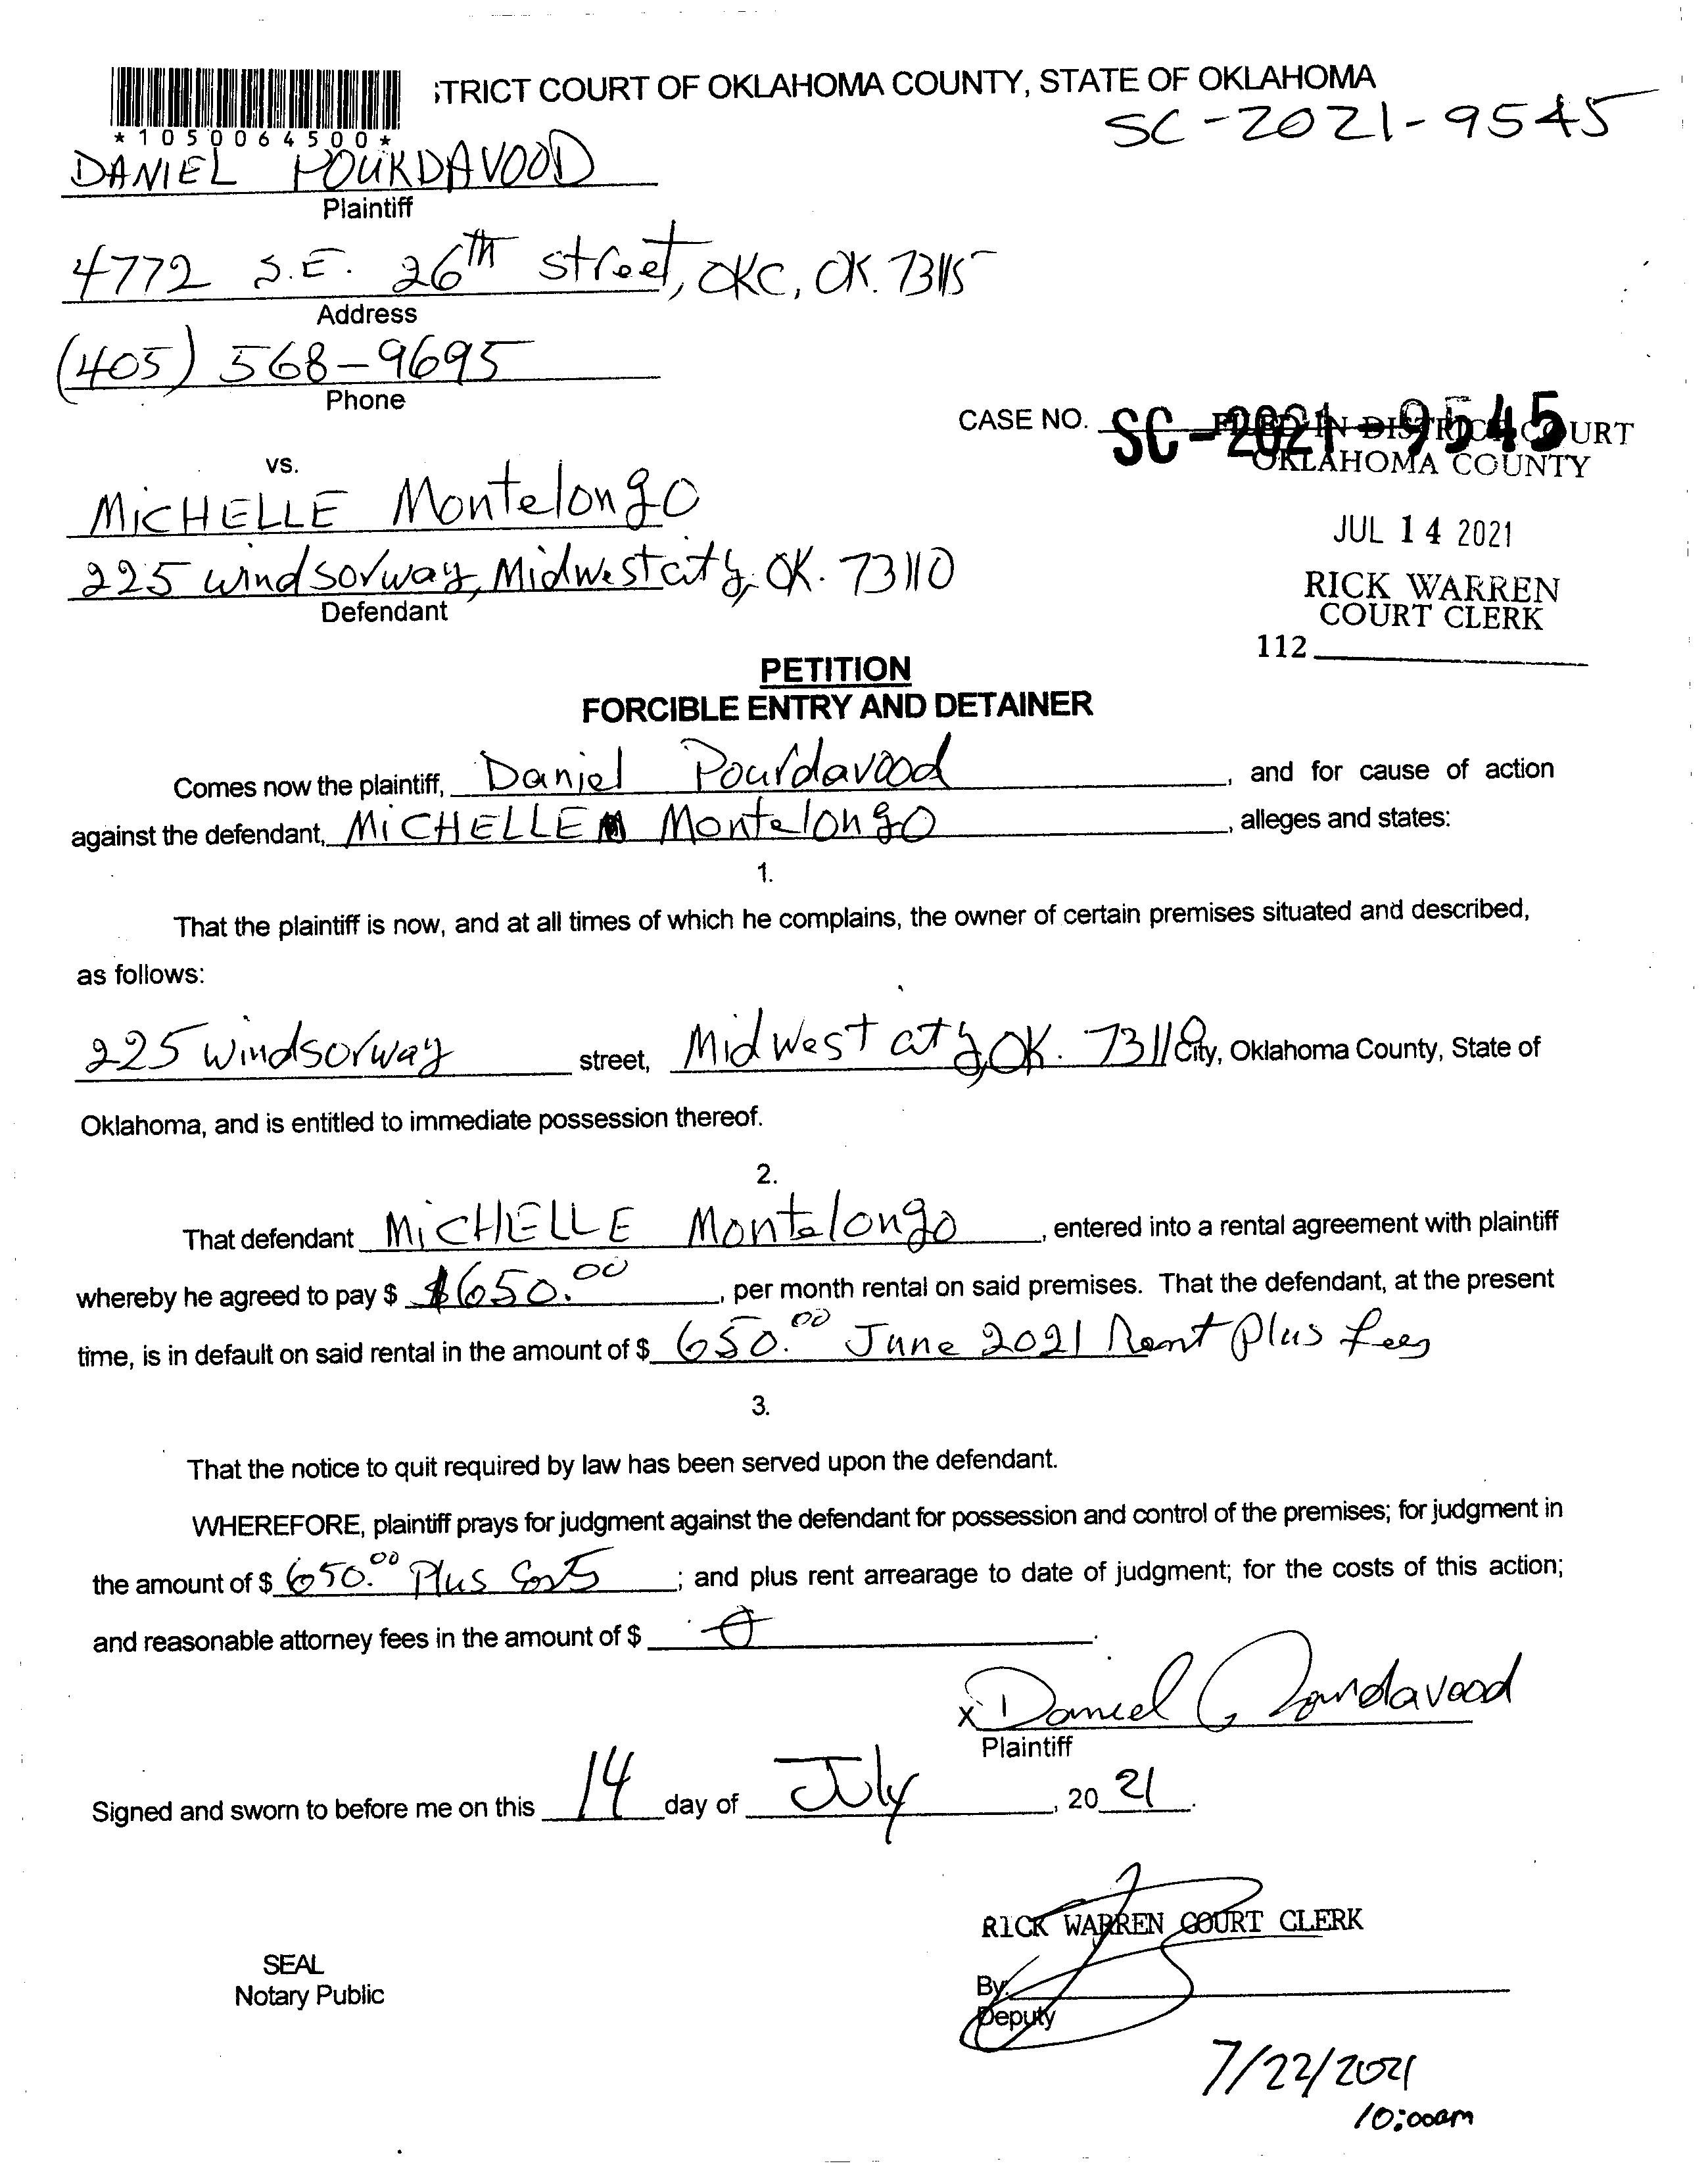 ;TRICT COURT OF OKLAHOMA COUNTY, STATE OF OKLAHOMA
SC-2021-9545
*1050064500*
DANIEL POURDAVOOD
Plaintiff
4772 S.E. 26TH street, OKC, OK. 73115
Address
(405) 568-9695
Phone
CASE NO. SC-2021-9545
FILED IN DISTRICT COURT
OKLAHOMA COUNTY
vs.
MiCHELLE Montelongo
225 windsorway, Midwest city, OK. 73110
Defendant
JUL 14 2021
RICK WARREN
COURT CLERK
112
PETITION
FORCIBLE ENTRY AND DETAINER
Comes now the plaintiff, Daniel Pourdavood, and for cause of action
against the defendant, MiCHELLE Montelongo, alleges and states:
1.
That the plaintiff is now, and at all times of which he complains, the owner of certain premises situated and described,
as follows:
225 windsorway street, Midwest city, OK. 73110 City, Oklahoma County, State of
Oklahoma, and is entitled to immediate possession thereof.
2.
That defendant MiCHELLE Montelongo, entered into a rental agreement with plaintiff
whereby he agreed to pay $ $650.00, per month rental on said premises. That the defendant, at the present
time, is in default on said rental in the amount of $ 650.00 June 2021 Rent Plus fees
3.
That the notice to quit required by law has been served upon the defendant.
WHEREFORE, plaintiff prays for judgment against the defendant for possession and control of the premises; for judgment in
the amount of $ 650.00 Plus Costs; and plus rent arrearage to date of judgment; for the costs of this action;
and reasonable attorney fees in the amount of $ 0.
x Daniel Pourdavood
Plaintiff
Signed and sworn to before me on this 14 day of July, 2021.
RICK WARREN COURT CLERK
SEAL
Notary Public
By:
Deputy
7/22/2021
10:00am